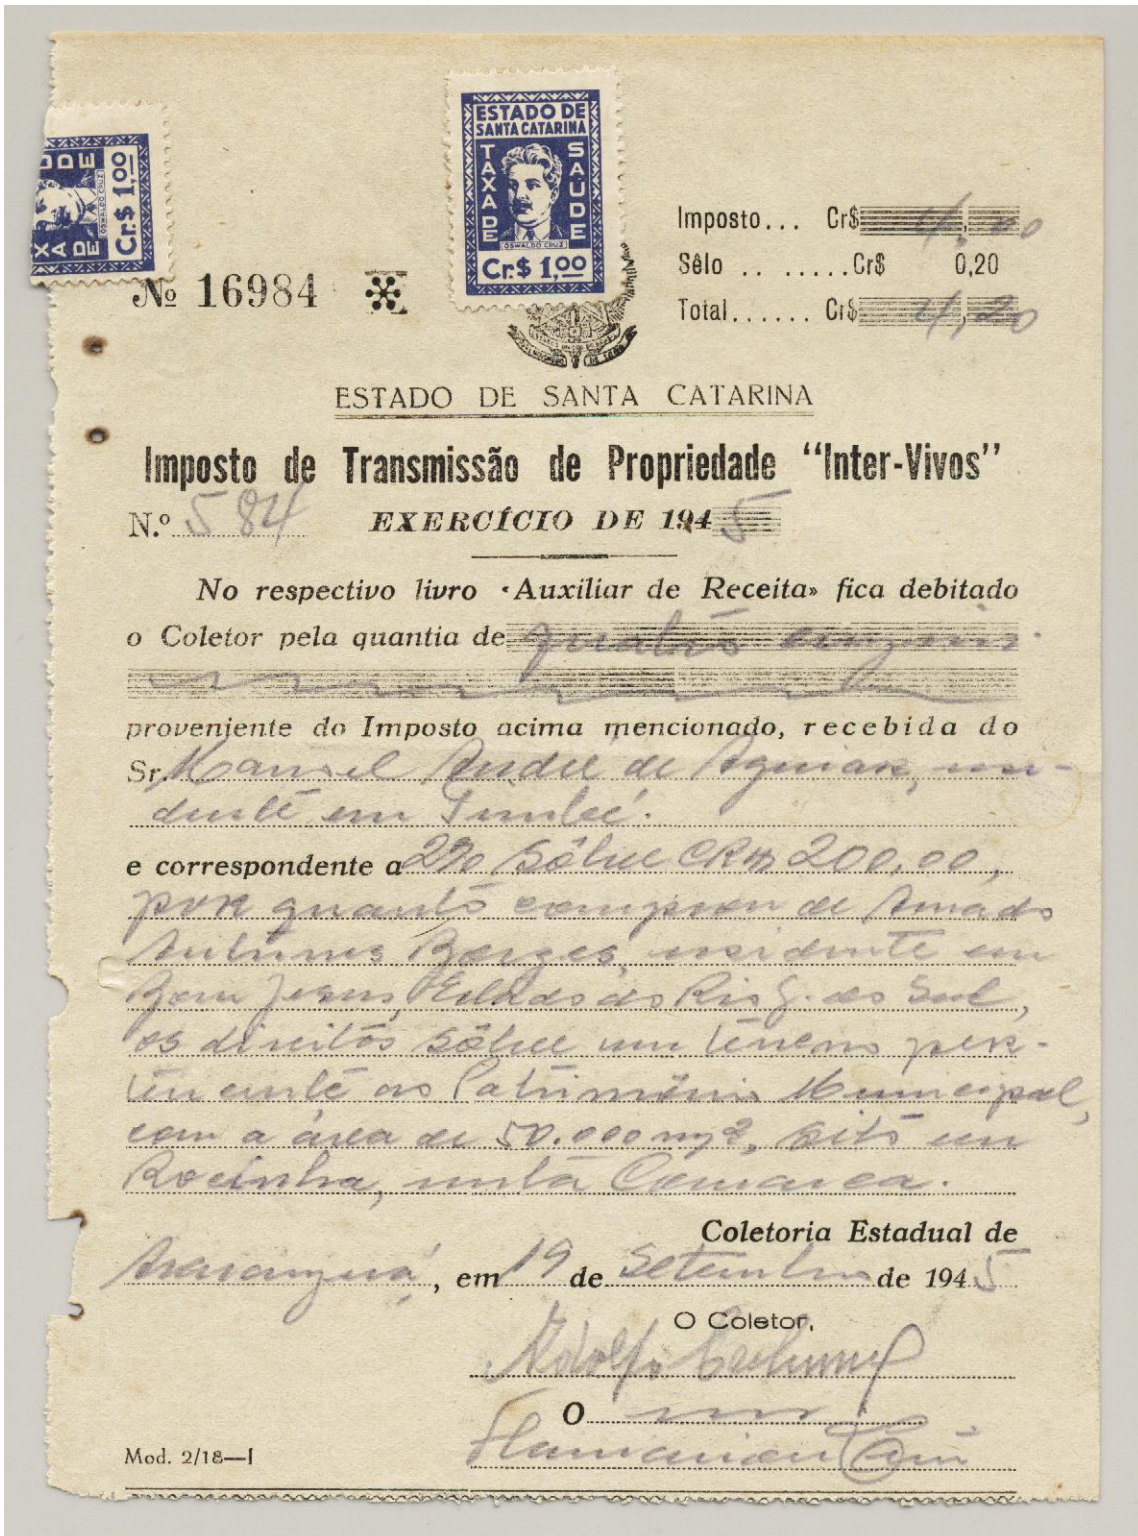 ESTADO DE
SANTA CATARINA
TAXA DE
SAUDE
OSWALDO CRUZ
Cr.$ 1,00
TAXA DE
OSWALDO CRUZ
Cr.$ 1,00
Imposto... Cr$ 4,00
Sêlo .. .....Cr$ 0,20
Total...... Cr$ 4,20
№ 16984
ESTADO DE SANTA CATARINA
Imposto de Transmissão de Propriedade "Inter-Vivos"
N.º 584 EXERCÍCIO DE 1945
No respectivo livro «Auxiliar de Receita» fica debitado
o Coletor pela quantia de quatro cruzeiros
proveniente do Imposto acima mencionado, recebida do
Sr. Manoel André de Aguiar, resi-
dente em Timbé.
e correspondente a 2% sôbre CR$ 200,00,
por quanto comprou de Amado
Antunes Borges, residente em
Bom Jesus, Estado do Rio G. do Sul,
os direitos sôbre um terreno per-
tencente ao Patrimônio Municipal,
com a área de 50.000 m2, sito em
Rocinha, nesta Comarca.
Coletoria Estadual de
Araranguá, em 19 de Setembro de 1945
O Coletor,
Adolfo
O
Mod. 2/18—I